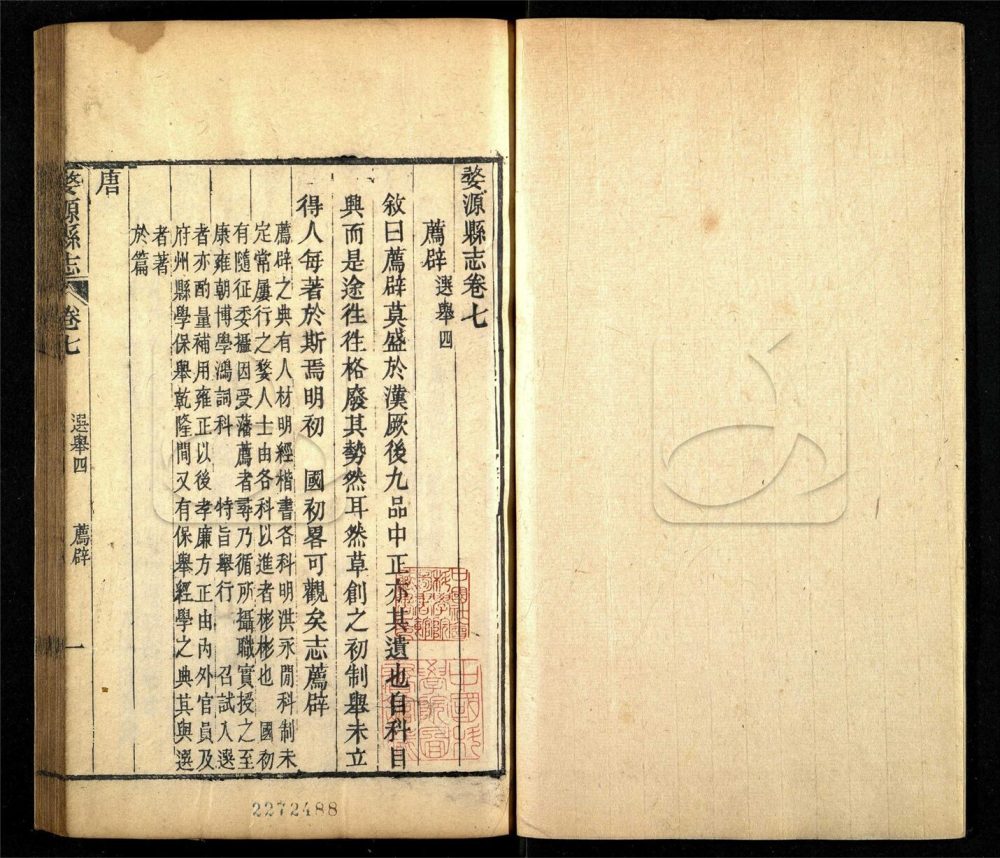 婺源縣志卷七
薦辟 選舉四
敘曰薦辟莫盛於漢厥後九品中正亦其遺也自科目
興而是途徃徃格廢其勢然耳然草創之初制舉未立
得人每著於斯焉明初 國初畧可觀矣志薦辟
薦辟之典有人材明經楷書各科明洪永間科制未
定常屢行之婺人士由各科以進者彬彬也 國初
有隨征委攝因受藩薦者尋乃循所攝職實授之至
康雍朝博學鴻詞科 特旨舉行 召試入選
者亦酌量補用雍正以後孝廉方正由內外官員及
府州縣學保舉乾隆間又有保舉經學之典其與選
者著
於篇
唐
婺源縣志 卷七 選舉四 薦辟 一
2272488